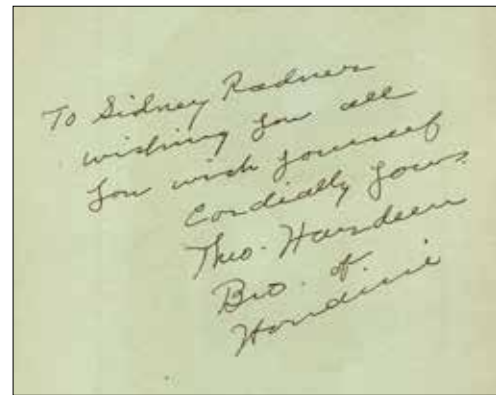 To Sidney Radner
wishing you all
you wish yourself
Cordially yours
Theo. Hardeen
Bro. of
Houdini